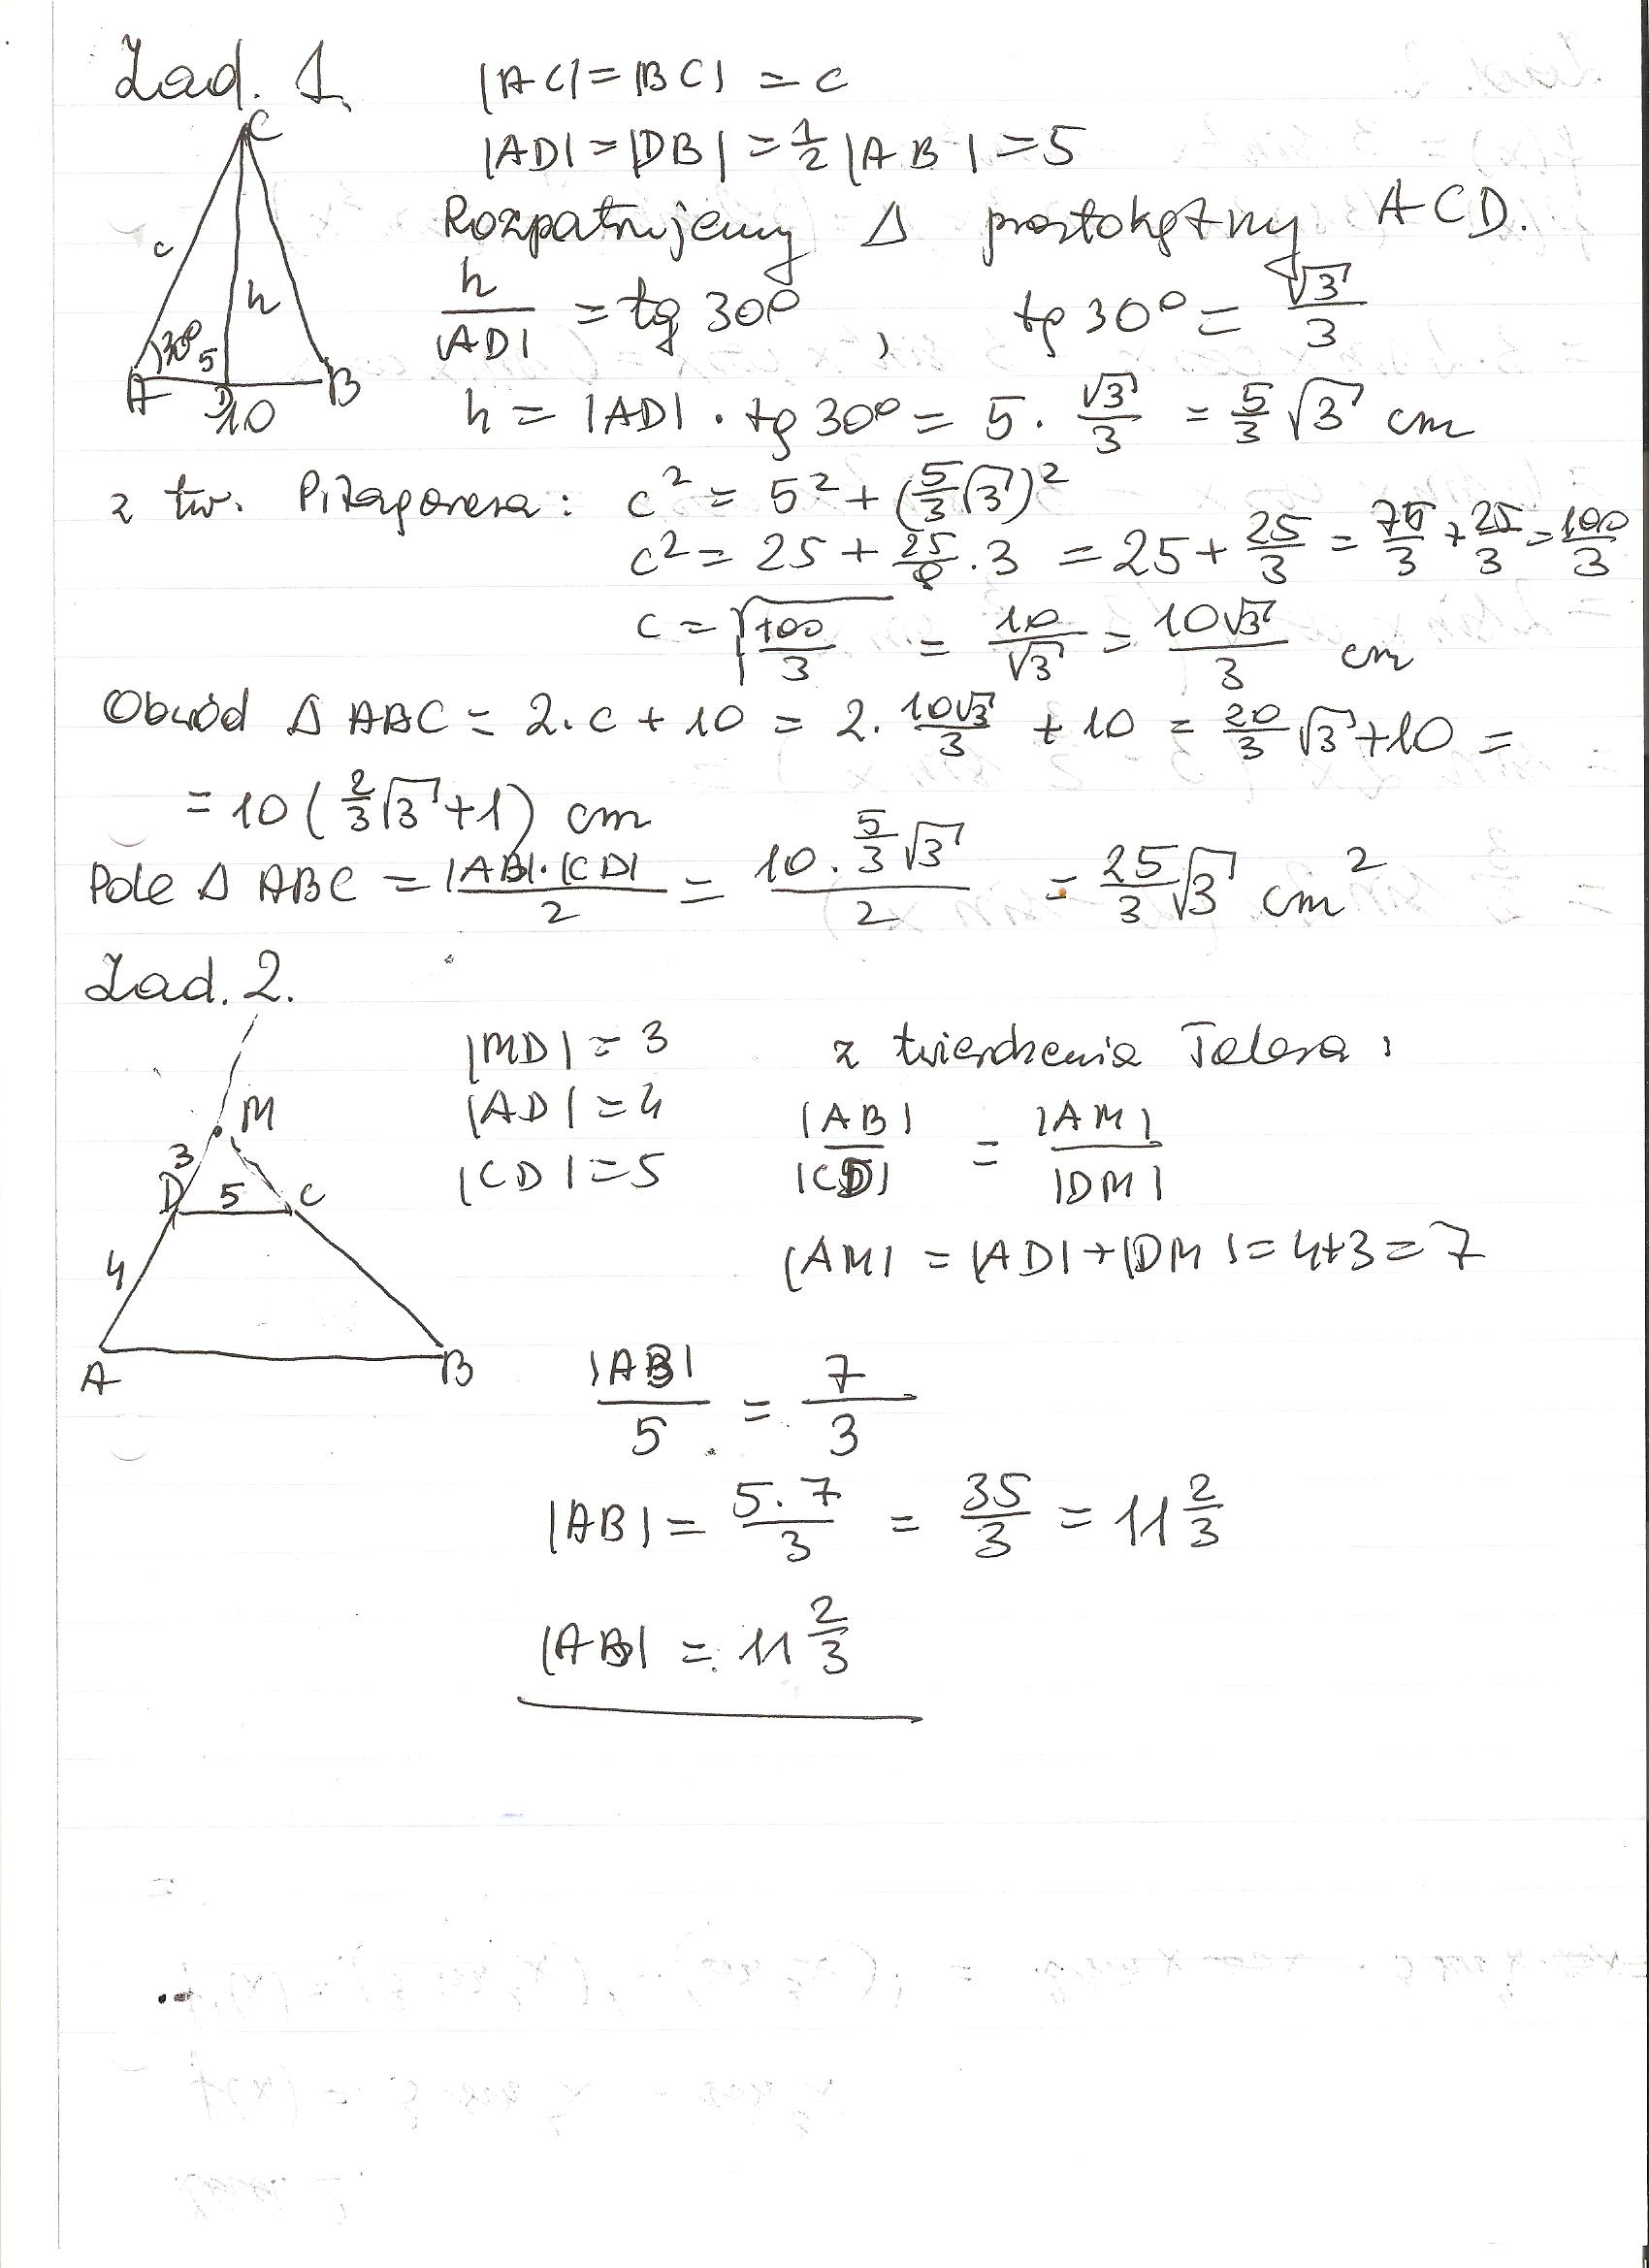 Zad. 1.
|AC| = |BC| = c
|AD| = |DB| = 1/2 |AB| = 5
Rozpatrujemy Δ prostokątny ACD.
h/|AD| = tg 30°, tg 30° = √3/3
h = |AD| · tg 30° = 5 · √3/3 = 5/3 √3 cm
C
c
h
30°
5
A D B
10
z tw. Pitagorasa: c² = 5² + (5/3 √3)²
c² = 25 + 25/9 · 3 = 25 + 25/3 = 75/3 + 25/3 = 100/3
c = √(100/3) = 10/√3 = 10√3/3 cm
Obwód Δ ABC = 2·c + 10 = 2 · 10√3/3 + 10 = 20/3 √3 + 10 =
= 10 (2/3 √3 + 1) cm
Pole Δ ABC = |AB|·|CD|/2 = 10 · 5/3 √3/2 = 25/3 √3 cm²
Zad. 2.
|MD| = 3 z twierdzenia Talesa:
|AD| = 4 |AB|/|CD| = |AM|/|DM|
|CD| = 5
|AM| = |AD| + |DM| = 4+3 = 7
M
3
D 5 C
4
A B
|AB|/5 = 7/3
|AB| = 5·7/3 = 35/3 = 11 2/3
|AB| = 11 2/3